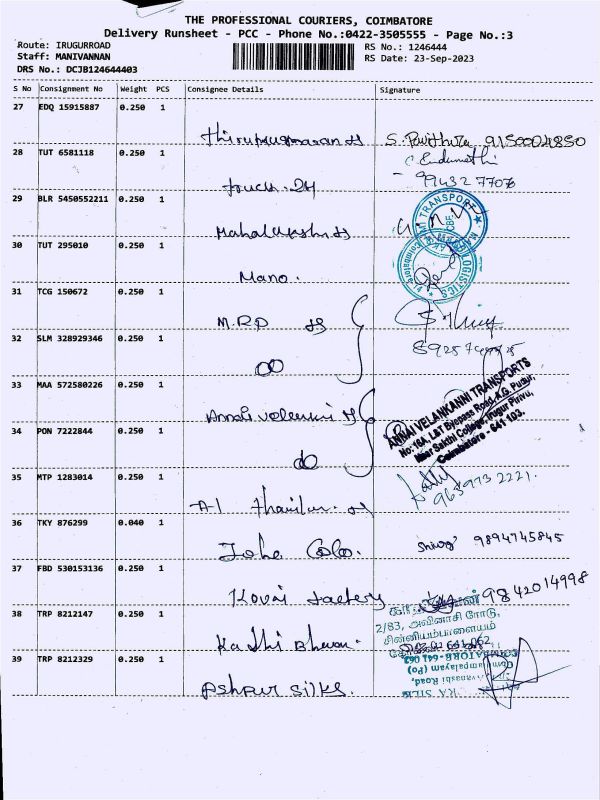 THE PROFESSIONAL COURIERS, COIMBATORE
Delivery Runsheet - PCC - Phone No.:0422-3505555 - Page No.:3
Route: IRUGURROAD
RS No.: 1246444
Staff: MANIVANNAN
RS Date: 23-Sep-2023
DRS No.: DCJB124644403
S No Consignment No Weight PCS Consignee Details Signature
27 EDQ 15915887 0.250 1
S. Pavithra 9150004850
28 TUT 6581118 0.250 1
99432 77076
Touch. 24
29 BLR 5450552211 0.250 1
TRANSPORT
Mahalakshmi
30 TUT 295010 0.250 1
LOGISTICS
Mano.
31 TCG 150672 0.250 1
M.R.P
32 SLM 328929346 0.250 1
do
33 MAA 572580226 0.250 1
ANNAI VELANKANNI TRANSPORTS
No: 18A, L&T Byepass Road, K.G. Pudur,
Near Sakthi College, Irugur Pirivu,
Coimbatore - 641 103.
Annai Velankanni
34 PON 7222844 0.250 1
do
35 MTP 1283014 0.250 1
965 973 2221.
A1
36 TKY 876299 0.040 1
9894745845
37 FBD 530153136 0.250 1
Kovai Factery
9842014998
38 TRP 8212147 0.250 1
2/83, அவினாசி ரோடு,
சின்னியம்பாளையம்
641 062
Kadhi Bhavan.
39 TRP 8212329 0.250 1
COIMBATORE-641 062
Avanashi Road,
KA SILK
Ashpur Silks.